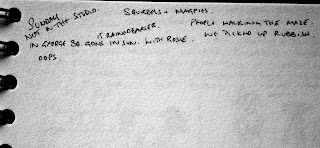 SUNDAY SQUIRRELS + MAGPIES.
NOT IN THE STUDIO. PEOPLE WALKING THE MAZE.
IN GEORGE SQ. GDNS IN SUN. WITH ROSIE. WE PICKED UP RUBBISH.
OOPS.